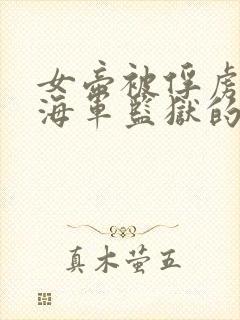 女帝被俘虏
海軍監獄的
真木萤五